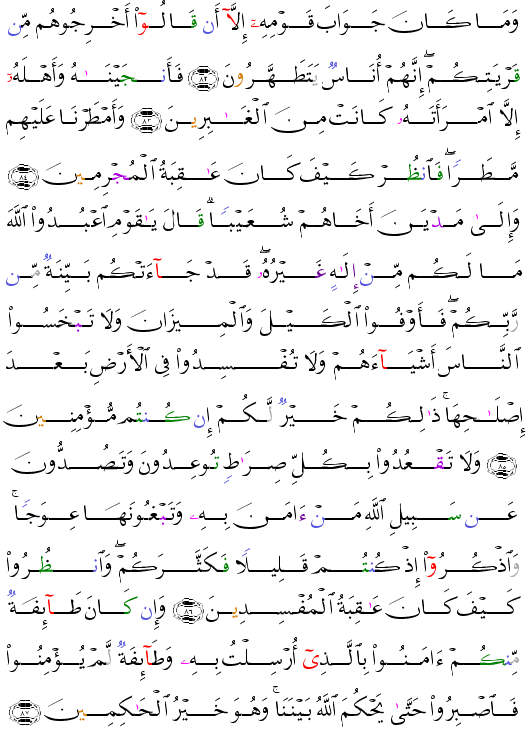 وَمَا كَانَ جَوَابَ قَوْمِهِۦٓ إِلَّآ أَن قَالُوٓا۟ أَخْرِجُوهُم مِّن
قَرْيَتِكُمْ ۖ إِنَّهُمْ أُنَاسٌ يَتَطَهَّرُونَ ﴿٨٢﴾ فَأَنجَيْنَـٰهُ وَأَهْلَهُۥٓ
إِلَّا ٱمْرَأَتَهُۥ كَانَتْ مِنَ ٱلْغَـٰبِرِينَ ﴿٨٣﴾ وَأَمْطَرْنَا عَلَيْهِم
مَّطَرًا ۖ فَٱنظُرْ كَيْفَ كَانَ عَـٰقِبَةُ ٱلْمُجْرِمِينَ ﴿٨٤﴾
وَإِلَىٰ مَدْيَنَ أَخَاهُمْ شُعَيْبًا ۗ قَالَ يَـٰقَوْمِ ٱعْبُدُوا۟ ٱللَّهَ
مَا لَكُم مِّنْ إِلَـٰهٍ غَيْرُهُۥ ۖ قَدْ جَآءَتْكُم بَيِّنَةٌ مِّن
رَّبِّكُمْ ۖ فَأَوْفُوا۟ ٱلْكَيْلَ وَٱلْمِيزَانَ وَلَا تَبْخَسُوا۟
ٱلنَّاسَ أَشْيَآءَهُمْ وَلَا تُفْسِدُوا۟ فِى ٱلْأَرْضِ بَعْدَ
إِصْلَـٰحِهَا ۚ ذَٰلِكُمْ خَيْرٌ لَّكُمْ إِن كُنتُم مُّؤْمِنِينَ
﴿٨٥﴾ وَلَا تَقْعُدُوا۟ بِكُلِّ صِرَٰطٍ تُوعِدُونَ وَتَصُدُّونَ
عَن سَبِيلِ ٱللَّهِ مَنْ ءَامَنَ بِهِۦ وَتَبْغُونَهَا عِوَجًا ۚ
وَٱذْكُرُوٓا۟ إِذْ كُنتُمْ قَلِيلًا فَكَثَّرَكُمْ ۖ وَٱنظُرُوا۟
كَيْفَ كَانَ عَـٰقِبَةُ ٱلْمُفْسِدِينَ ﴿٨٦﴾ وَإِن كَانَ طَآئِفَةٌ
مِّنكُمْ ءَامَنُوا۟ بِٱلَّذِىٓ أُرْسِلْتُ بِهِۦ وَطَآئِفَةٌ لَّمْ يُؤْمِنُوا۟
فَٱصْبِرُوا۟ حَتَّىٰ يَحْكُمَ ٱللَّهُ بَيْنَنَا ۚ وَهُوَ خَيْرُ ٱلْحَـٰكِمِينَ ﴿٨٧﴾